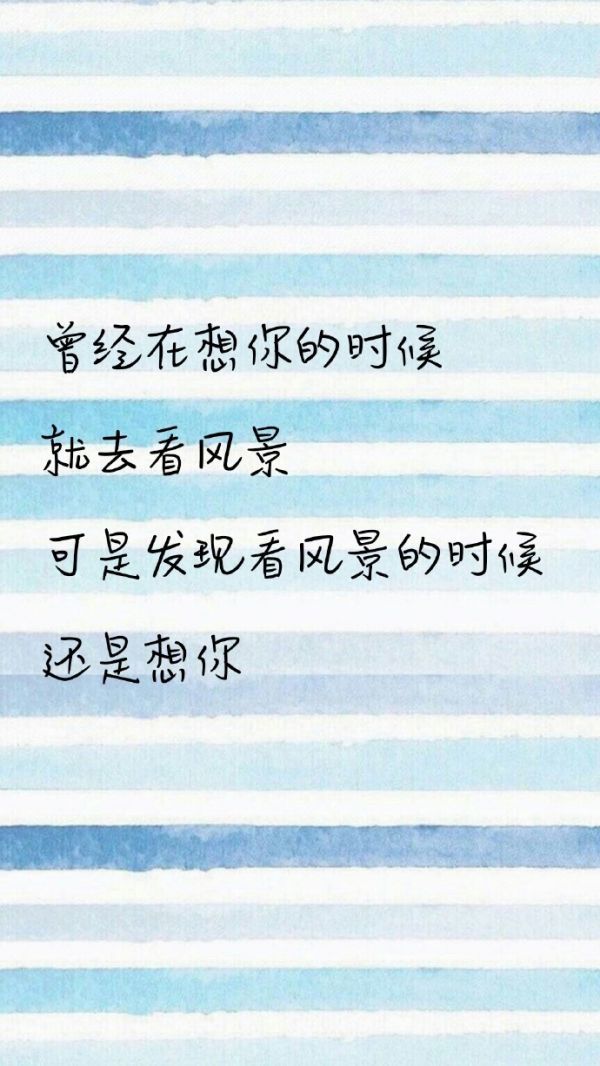 曾经在想你的时候
就去看风景
可是发现看风景的时候
还是想你